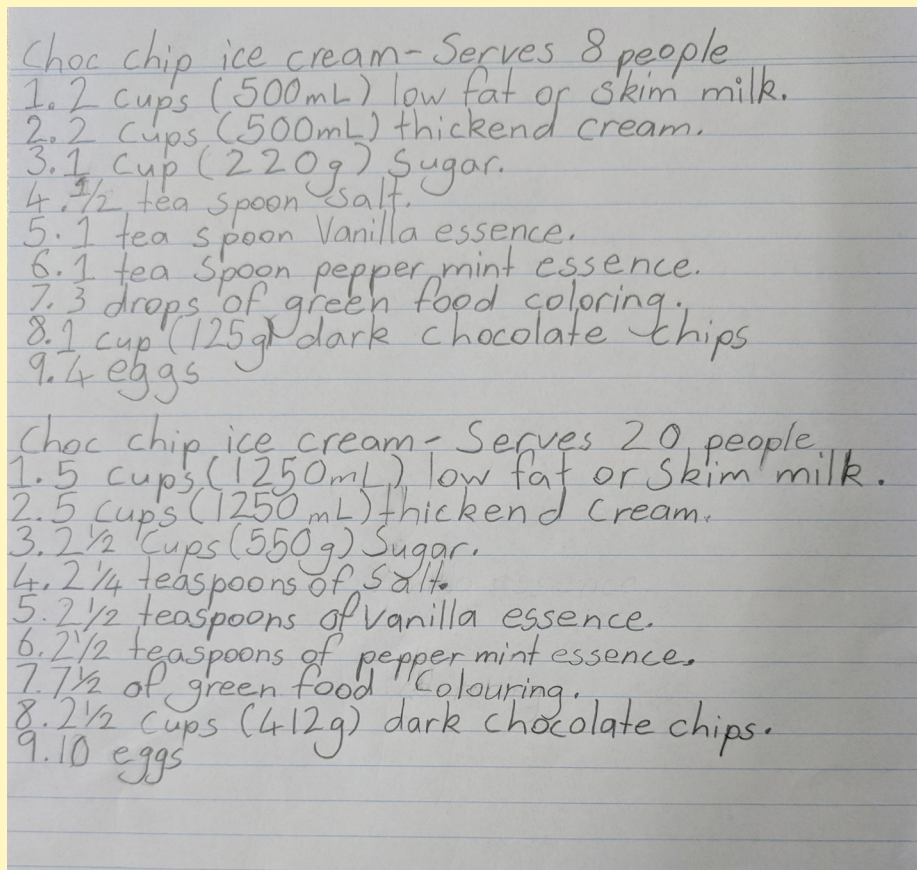 Choc chip ice cream - Serves 8 people
1. 2 cups (500mL) low fat or skim milk.
2. 2 cups (500mL) thickend cream.
3. 1 cup (220g) Sugar.
4. 1/2 tea spoon salt.
5. 1 tea spoon Vanilla essence.
6. 1 tea spoon pepper mint essence.
7. 3 drops of green food coloring.
8. 1 cup (125g) dark chocolate chips
9. 4 eggs
Choc chip ice cream - Serves 20 people
1. 5 cups (1250mL) low fat or skim milk.
2. 5 cups (1250mL) thickend cream.
3. 2 1/2 cups (550g) Sugar.
4. 2 1/4 teaspoons of salt.
5. 2 1/2 teaspoons of vanilla essence.
6. 2 1/2 teaspoons of pepper mint essence.
7. 7 1/2 of green food colouring.
8. 2 1/2 cups (412g) dark chocolate chips.
9. 10 eggs